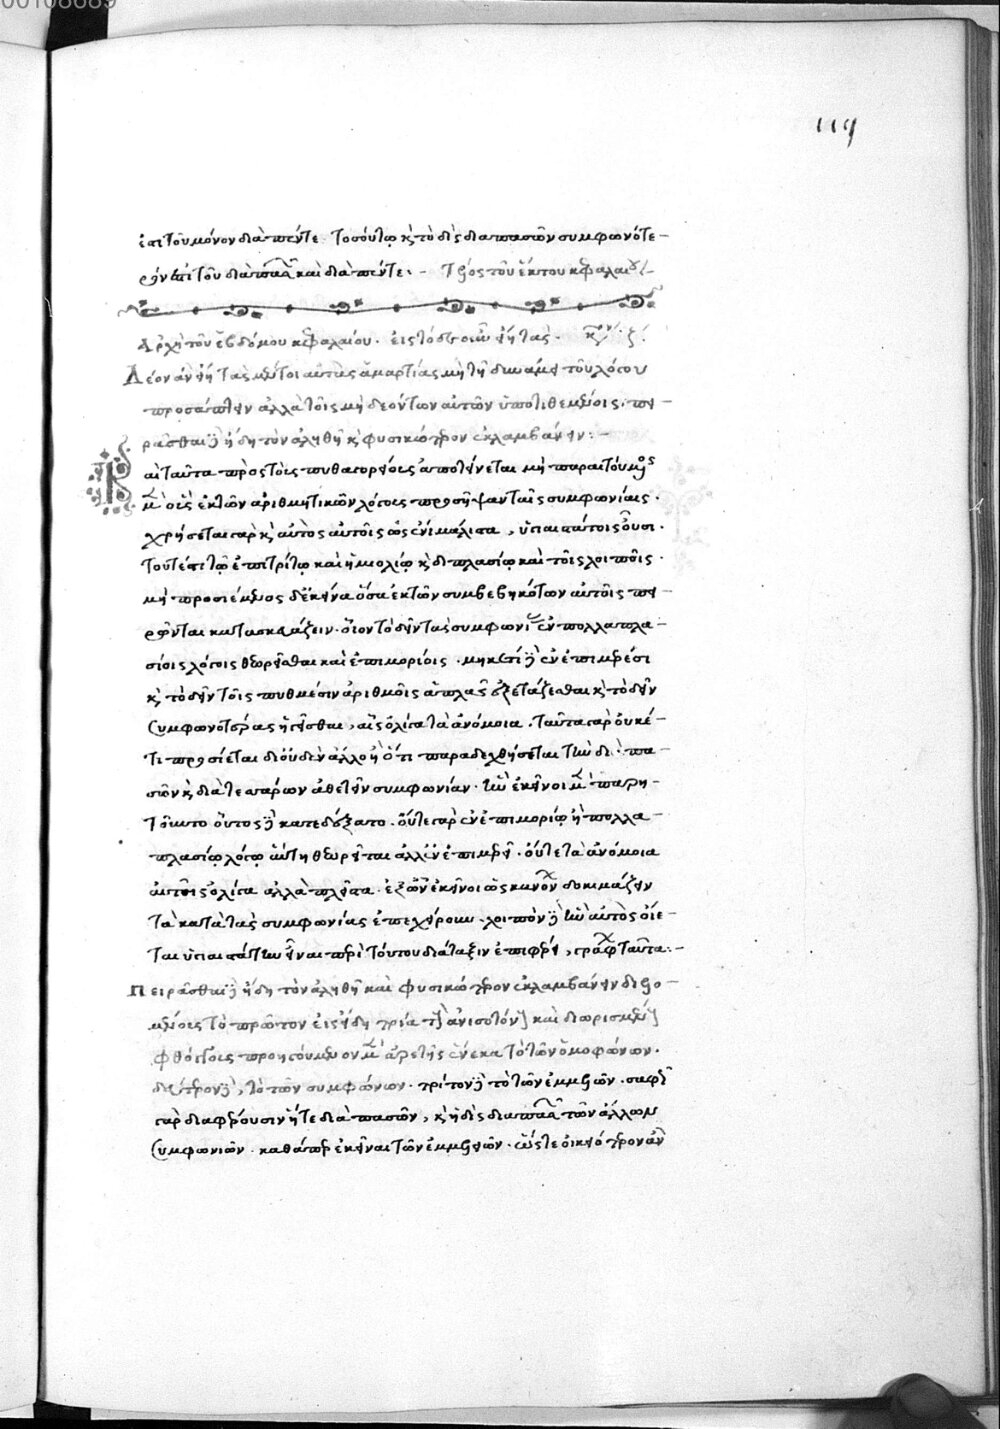 00108689
119
ἐστι τοῦ μόνον διὰ πέντε τοσούτῳ κ τὸ δὶς διαπασῶν συμφωνότε-
ρον ἐπὶ τοῦ διὰ πασῶν καὶ διὰ πέντε. τέλος τοῦ ἕκτου κεφαλαίου
Ἀρχὴ τοῦ ἑβδόμου κεφαλαίου. εἰς τὸ
Δέον ἂν εἴη τὰς μέντοι αὐτὰς ἁμαρτίας μὴ τῇ δυνάμει τοῦ λόγου
προσάπτειν ἀλλὰ τοῖς μὴ δεόντως αὐτὸν ὑποτιθεμένοις. πει-
ρᾶσθαι δὲ ἤδη τὸν ἀληθῆ κ φυσικώτερον ἐκλαμβάνειν:-
Καὶ ταῦτα πρὸς τοὺς πυθαγορείους ἀποτείνεται μὴ παραιτούμενος
μὲν οἷς ἐκ τῶν ἀριθμητικῶν λόγοις προσῆψαν ταῖς συμφωνίαις.
χρήσεται γὰρ κ αὐτὸς αὐτοῖς ὡς ἔνι μάλιστα, ὑγιᾶ γὰρ τοῖς οὖσι.
τουτέστι τῷ ἐπιτρίτῳ καὶ ἡμιολίῳ κ διπλασίῳ καὶ τοῖς λοιποῖς.
μὴ προσιέμενος δὲ ἐκεῖνα ὅσα ἐκ τῶν συμβεβηκότων αὐτοῖς πει-
ρῶνται κατασκευάζειν. οἷον τὸ δεῖν τὰς συμφωνίας ἐν πολλαπλα-
σίοις λόγοις θεωρεῖσθαι καὶ ἐπιμορίοις. μηκέτι δὲ ἐν ἐπιμερέσι
κ τὸ δεῖν τοῖς πυθμέσιν ἀριθμοῖς ἁπλῶς ἐξετάζεσθαι κ τὸ δεῖν
συμφωνοτέρας ἡγεῖσθαι, αἷς ὀλίγα τὰ ἀνόμοια. ταῦτα γὰρ οὐκέ-
τι προσίεται δι' οὐδὲν ἄλλο ἢ ὅτι παραδεχθήσεται τὴν διὰ πα-
σῶν κ διὰ τεσσάρων ἀθετεῖν συμφωνίαν. ἣν ἐκεῖνοι μὲν παρῃ-
τοῦντο οὗτος δὲ κατεδέξατο. οὔτε γὰρ ἐν ἐπιμορίῳ ἢ πολλα-
πλασίῳ λόγῳ αὕτη θεωρεῖται ἀλλ' ἐν ἐπιμερεῖ. οὔτε τὰ ἀνόμοια
αὐτῆς ὀλίγα ἀλλὰ πλεῖστα. ἐξ ὧν ἐκεῖνοι ὡς κανόνων δοκιμάζειν
τὰ κατὰ τὰς συμφωνίας ἐπεχείρουν. λοιπὸν δὲ ἣν αὐτὸς οἴε-
ται ὑγιαστάτην εἶναι περὶ τούτου διάταξιν ἐπιφέρει, γράφων ταῦτα:-
Πειρᾶσθαι δὲ ἤδη τὸν ἀληθῆ καὶ φυσικώτερον ἐκλαμβάνειν διελο-
μένοις τὸ πρῶτον εἰς εἴδη τρία τῶν ἀνισοτόνων καὶ διωρισμένων
φθόγγοις προηγούμενον μὲν ἀρετῆς ἕνεκα τὸ τῶν ὁμοφώνων.
δεύτερον δὲ, τὸ τῶν συμφώνων. τρίτον δὲ τὸ τῶν ἐμμελῶν. σαφῶς
γὰρ διαφέρουσιν ἥτε διὰ πασῶν, κ ἡ δὶς διαπασῶν τῶν ἄλλων
συμφωνιῶν. καθάπερ ἐκεῖναι τῶν ἐμμελῶν. ὥστε οἰκειότερον ἂν